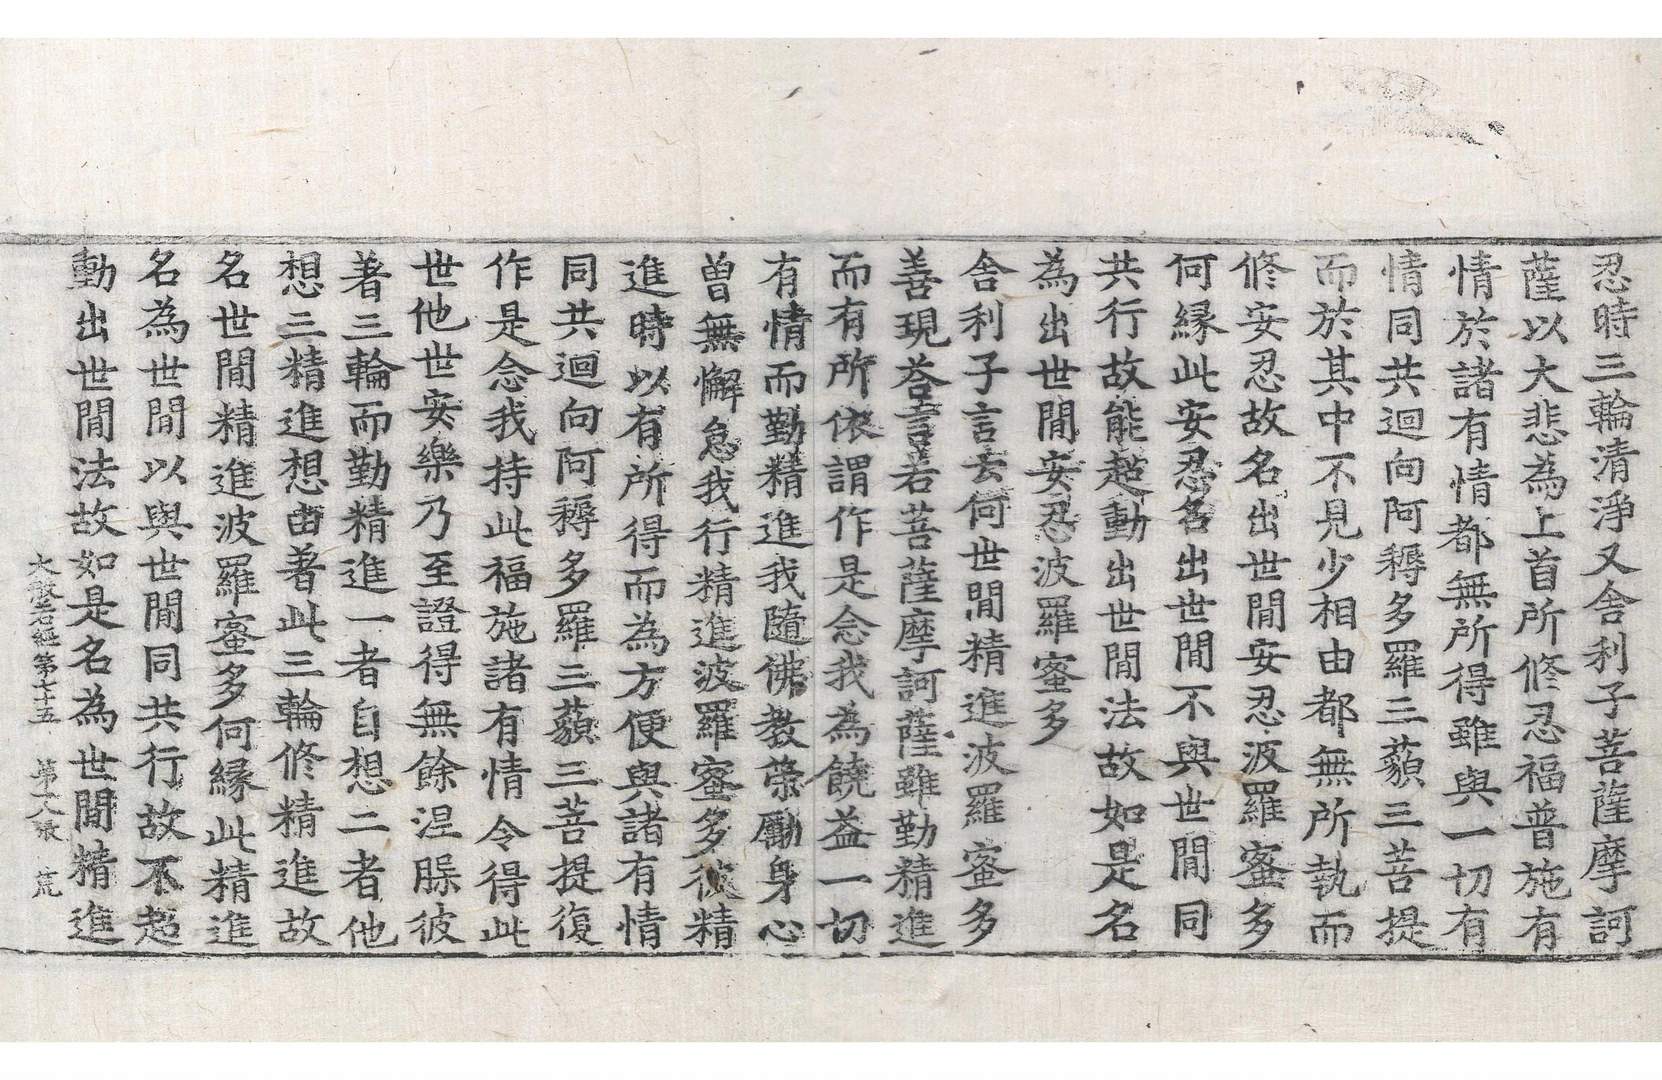 忍時三輪清淨又舍利子菩薩摩訶
薩以大悲為上首所修忍福普施有
情於諸有情都無所得雖與一切有
情同共迴向阿耨多羅三藐三菩提
而於其中不見少相由都無所執而
修安忍故名出世間安忍波羅蜜多
何緣此安忍名出世間不與世間同
共行故能超動出世間法故如是名
為出世間安忍波羅蜜多
舍利子言云何世間精進波羅蜜多
善現荅言若菩薩摩訶薩雖勤精進
而有所依謂作是念我為饒益一切
有情而勤精進我隨佛教策勵身心
曾無懈怠我行精進波羅蜜多彼精
進時以有所得而為方便與諸有情
同共迴向阿耨多羅三藐三菩提復
作是念我持此福施諸有情令得此
世他世安樂乃至證得無餘涅槃彼
著三輪而勤精進一者自想二者他
想三精進想由著此三輪修精進故
名世間精進波羅蜜多何緣此精進
名為世間以與世間同共行故不超
動出世間法故如是名為世間精進
大般若經第七十五　第十八張　荒